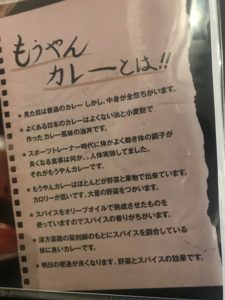 もうやん
カレーとは!!
★ 見た目は普通のカレー しかし、中身が全然ちがいます。
★ よくある日本のカレーはよくない油と小麦粉で
作ったカレー風味の油丼です。
★ スポーツトレーナー時代に体がよく動き体の調子が
良くなる食事は何か、、人体実験してました。
それがもうやんカレーです。
★ もうやんカレーはほとんどが野菜と果物で出来ています。
カロリーが低いです、大量の野菜をつかいます。
★ スパイスをオリーブオイルで熟成させたものを
使っていますのでスパイスの香りがちがいます。
★ 漢方薬膳の薬剤師のもとにスパイスを調合している
体に良いカレーです。
★ 明日の便通が良くなります、野菜とスパイスの効果です。